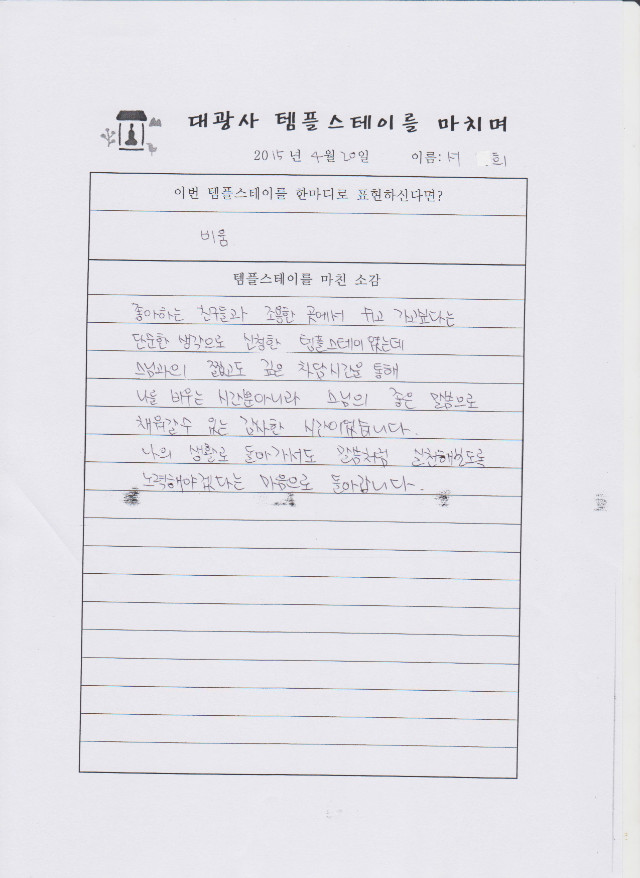 대광사 템플스테이를 마치며
2015년 4월 20일 이름: 서 희
이번 템플스테이를 한마디로 표현하신다면?
비움
템플스테이를 마친 소감
좋아하는 친구들과 조용한 곳에서 쉬고 가고싶다는
단순한 생각으로 신청한 템플스테이였는데
스님과의 짧고도 깊은 차담시간을 통해
나를 비우는 시간뿐아니라 스님의 좋은 말씀으로
채워갈수 있는 감사한 시간이었습니다.
나의 생활로 돌아가서도 말씀처럼 실천해보도록
노력해야겠다는 마음으로 돌아갑니다.